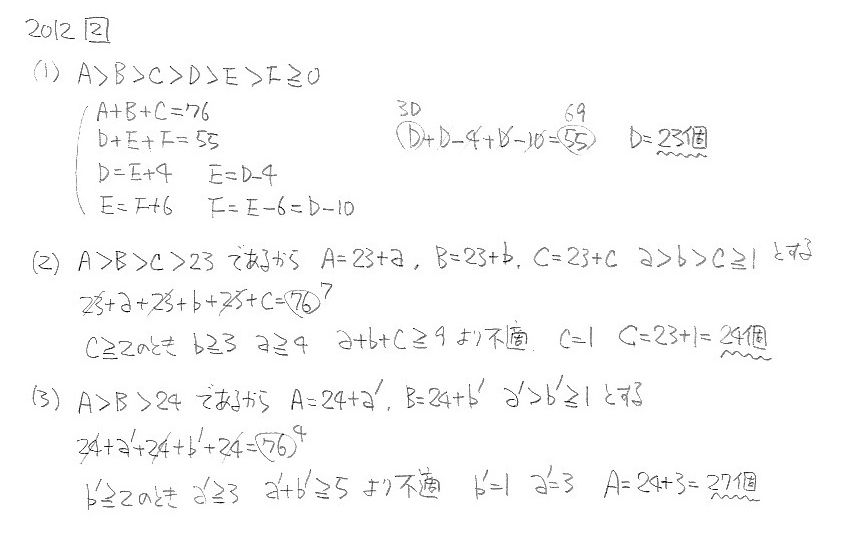 2012 2
(1) A>B>C>D>E>F≧0
A+B+C=76
D+E+F=55
D=E+4 E=D-4
E=F+6 F=E-6=D-10
3D 69
D+D-4+D-10=55 D=23個
(2) A>B>C>23 であるから A=23+a, B=23+b, C=23+c a>b>c≧1 とする
23+a+23+b+23+c=76 7
c≧2のとき b≧3 a≧4 a+b+c≧9 より不適 c=1 C=23+1=24個
(3) A>B>24 であるから A=24+a', B=24+b' a'>b'≧1 とする
24+a'+24+b'+24=76 4
b'≧2のとき a'≧3 a'+b'≧5 より不適 b'=1 a'=3 A=24+3=27個